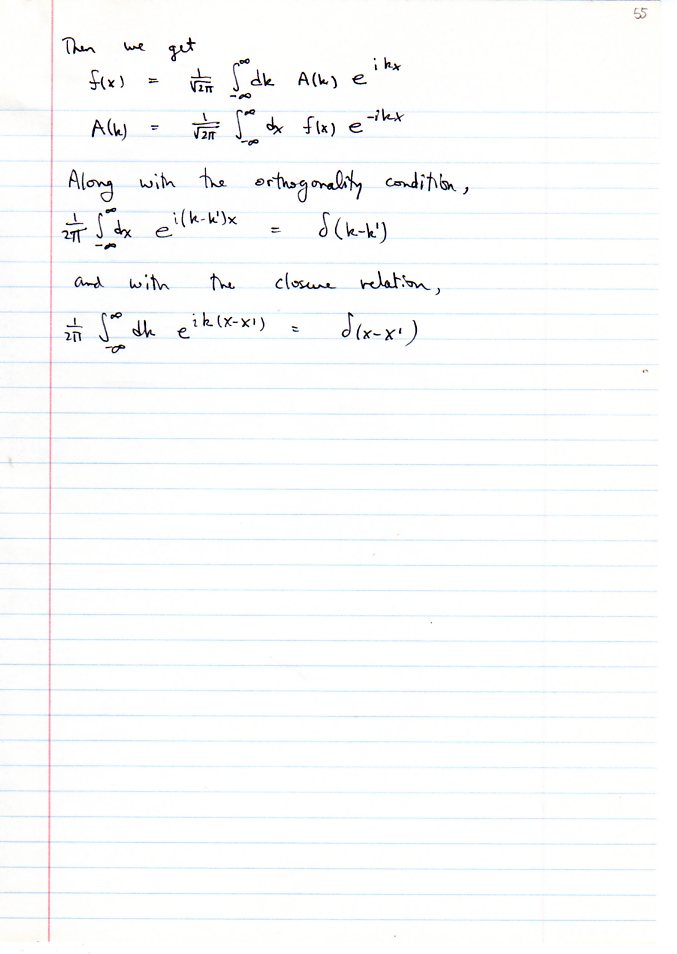 55
Then we get
f(x) = 1/√2π ∫_{-∞}^{∞} dk A(k) e^{ikx}
A(k) = 1/√2π ∫_{-∞}^{∞} dx f(x) e^{-ikx}
Along with the orthogonality condition,
1/2π ∫_{-∞}^{∞} dx e^{i(k-k')x} = δ(k-k')
and with the closure relation,
1/2π ∫_{-∞}^{∞} dk e^{ik(x-x')} = δ(x-x')